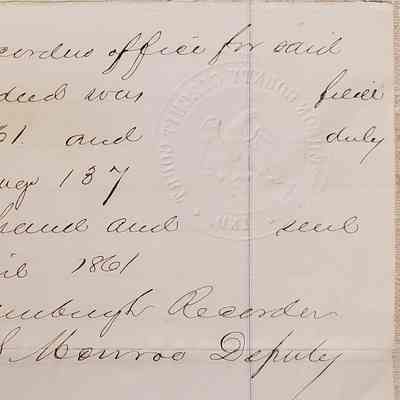 corders office for said
deed was filed
61. and duly
page 137
hand and seal
ril 1861
Recorder
S Monroe Deputy